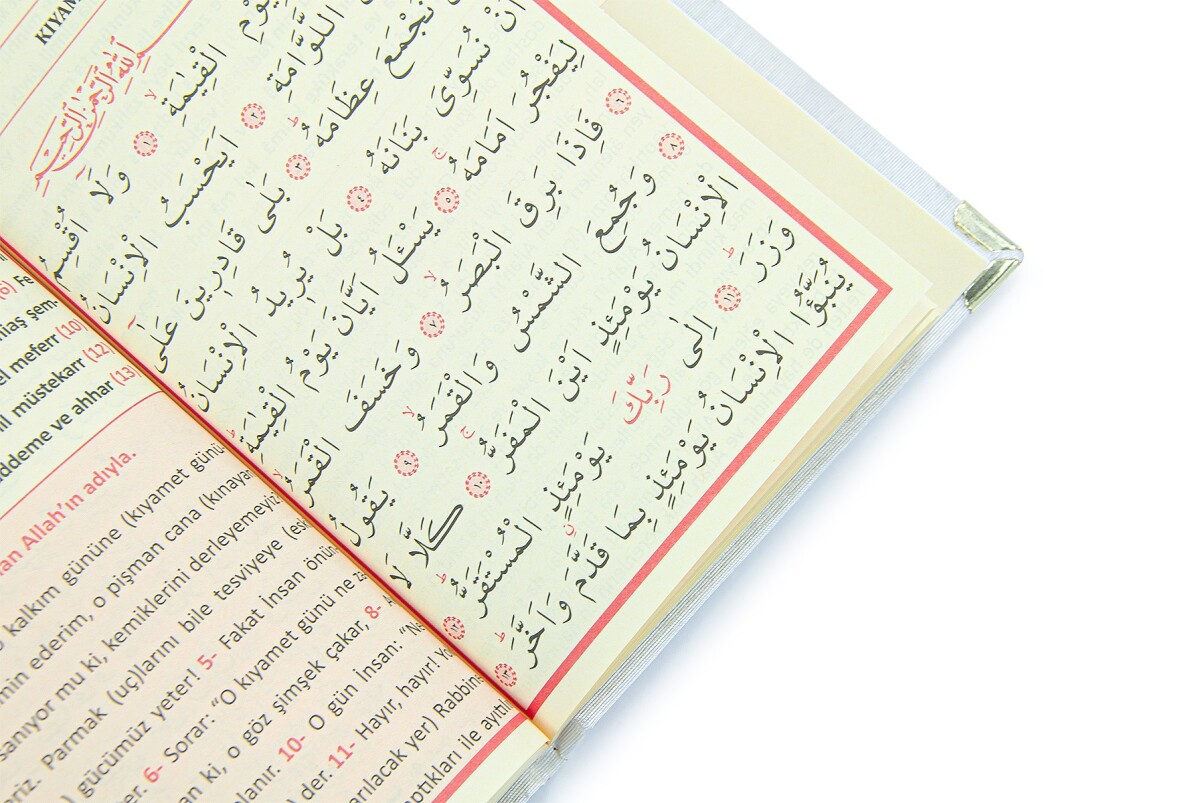 KIYAM
بِسْمِ اللّٰهِ الرَّحْمٰنِ الرَّحِيمِ
الْقِيٰمَةِۙ ﴿١﴾ وَلَآ اُقْسِمُ
اللَّوَّامَةِۜ ﴿٢﴾ اَيَحْسَبُ الْاِنْسَانُ
نَجْمَعَ عِظَامَهُۜ ﴿٣﴾ بَلٰى قَادِرِينَ عَلٰٓى
اَنْ نُسَوِّىَ بَنَانَهُ ﴿٤﴾ بَلْ يُرِيدُ الْاِنْسَانُ
لِيَفْجُرَ اَمَامَهُۚ ﴿٥﴾ يَسْـَٔلُ اَيَّانَ يَوْمُ الْقِيٰمَةِۜ
﴿٦﴾ فَاِذَا بَرِقَ الْبَصَرُۙ ﴿٧﴾ وَخَسَفَ الْقَمَرُۙ
﴿٨﴾ وَجُمِعَ الشَّمْسُ وَالْقَمَرُۙ ﴿٩﴾ يَقُولُ
الْاِنْسَانُ يَوْمَئِذٍ اَيْنَ الْمَفَرُّۚ ﴿١٠﴾ كَلَّا لَا
وَزَرَۜ ﴿١١﴾ اِلٰى رَبِّكَ يَوْمَئِذٍ ࣙالْمُسْتَقَرُّۜ ﴿١٢﴾
يُنَبَّؤُا الْاِنْسَانُ يَوْمَئِذٍ بِمَا قَدَّمَ وَاَخَّرَۜ ﴿١٣﴾
(6) Fe
şem
meferr (10)
müstekarr (12)
ve ahhar (13)
Allah'ın adıyla.
kalkım gününe (kıyamet günü
ederim, o pişman cana (kınayan
mu ki, kemiklerini derleyemeyiz
Parmak (uç)larını bile tesviyeye
gücümüz yeter! 5- Fakat İnsan önün
6- Sorar: “O kıyamet günü ne
ki, o göz şimşek çakar, 8-
10- O gün İnsan:
der. 11- Hayır, hayır!
yer) Rabbin
ile